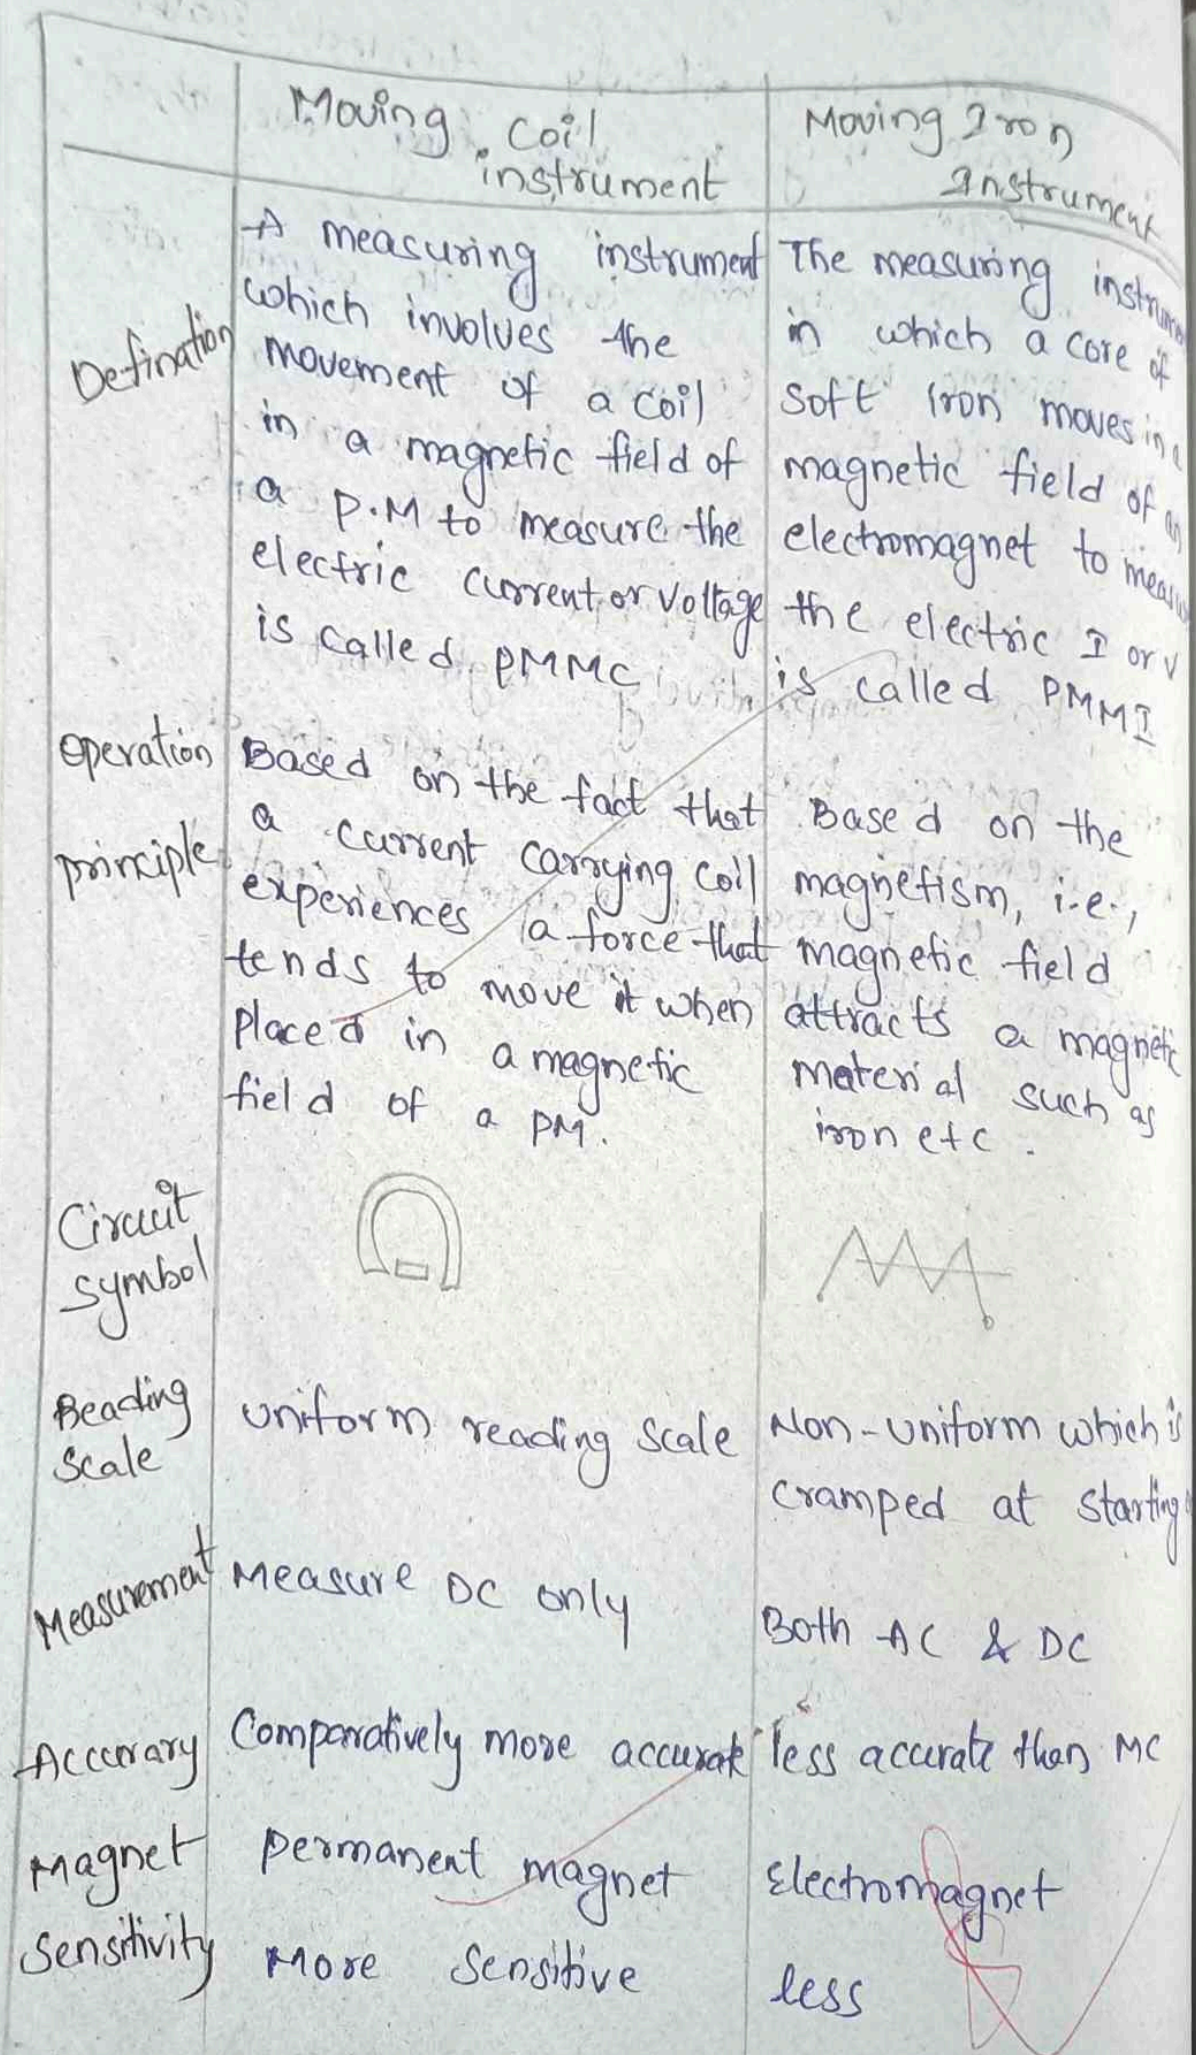 Moving Coil
instrument
Moving Iron
Instrument
Defination
A measuring instrument
which involves the
movement of a coil
in a magnetic field of
a P.M to measure the
electric current or voltage
is called PMMC
The measuring
in which a core of
soft iron moves in a
magnetic field of an
electromagnet to
the electric I or V
is called PMMI
Operation
principle
Based on the fact that
a current carrying coil
experiences a force that
tends to move it when
placed in a magnetic
field of a PM.
Based on the
magnetism, i.e.,
magnetic field
attracts a magnetic
material such as
iron etc.
Circuit
symbol
Reading
Scale
Uniform reading scale
Non-uniform which is
cramped at starting
Measurement
Measure DC only
Both AC & DC
Accurary
Comparatively more accurate
less accurate than MC
Magnet
permanent magnet
Electromagnet
Sensitivity
More Sensitive
less